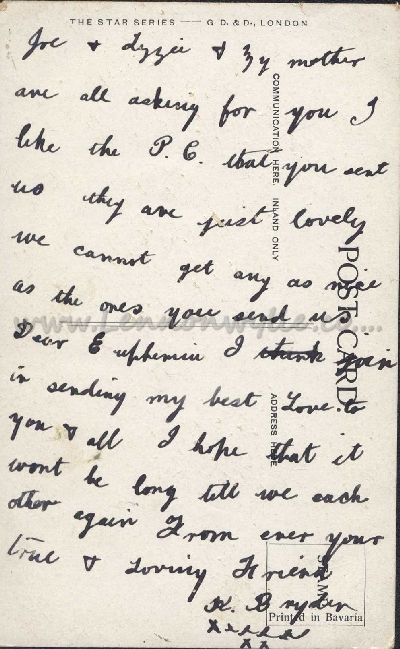 THE STAR SERIES — G. D. & D., LONDON
Joe & Lyzzie & my mother
are all asking for you I
like the P.C. that you sent
us they are just lovely
we cannot get any as nice
as the ones you send us
Dear Euphemia I think join
in sending my best Love to
you & all I hope that it
wont be long till we each
other again From ever your
true & Loving Friend
K. Bryden
x x x x x x
x x
COMMUNICATION HERE INLAND ONLY
POST CARD
ADDRESS HERE
STAMP
Printed in Bavaria